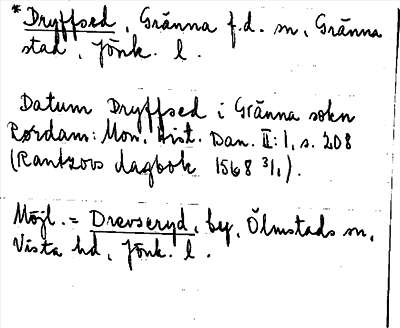 *Dryffsed, Gränna f.d. sn, Gränna
stad, Jönk. l.
Datum Dryffsed i Gränna sokn
Rørdam: Mon. Hist. Dan. II:1, s. 208
(Rantzovs dagbok 1568 3/1).
Möjl. = Drevseryd, by, Ölmstads sn,
Vista hd, Jönk. l.